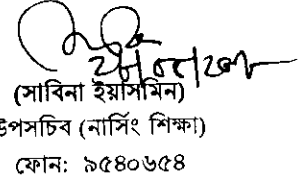 (সাবিনা ইয়াসমিন)
উপসচিব (নার্সিং শিক্ষা)
ফোন: ৯৫৪০৬৫৪